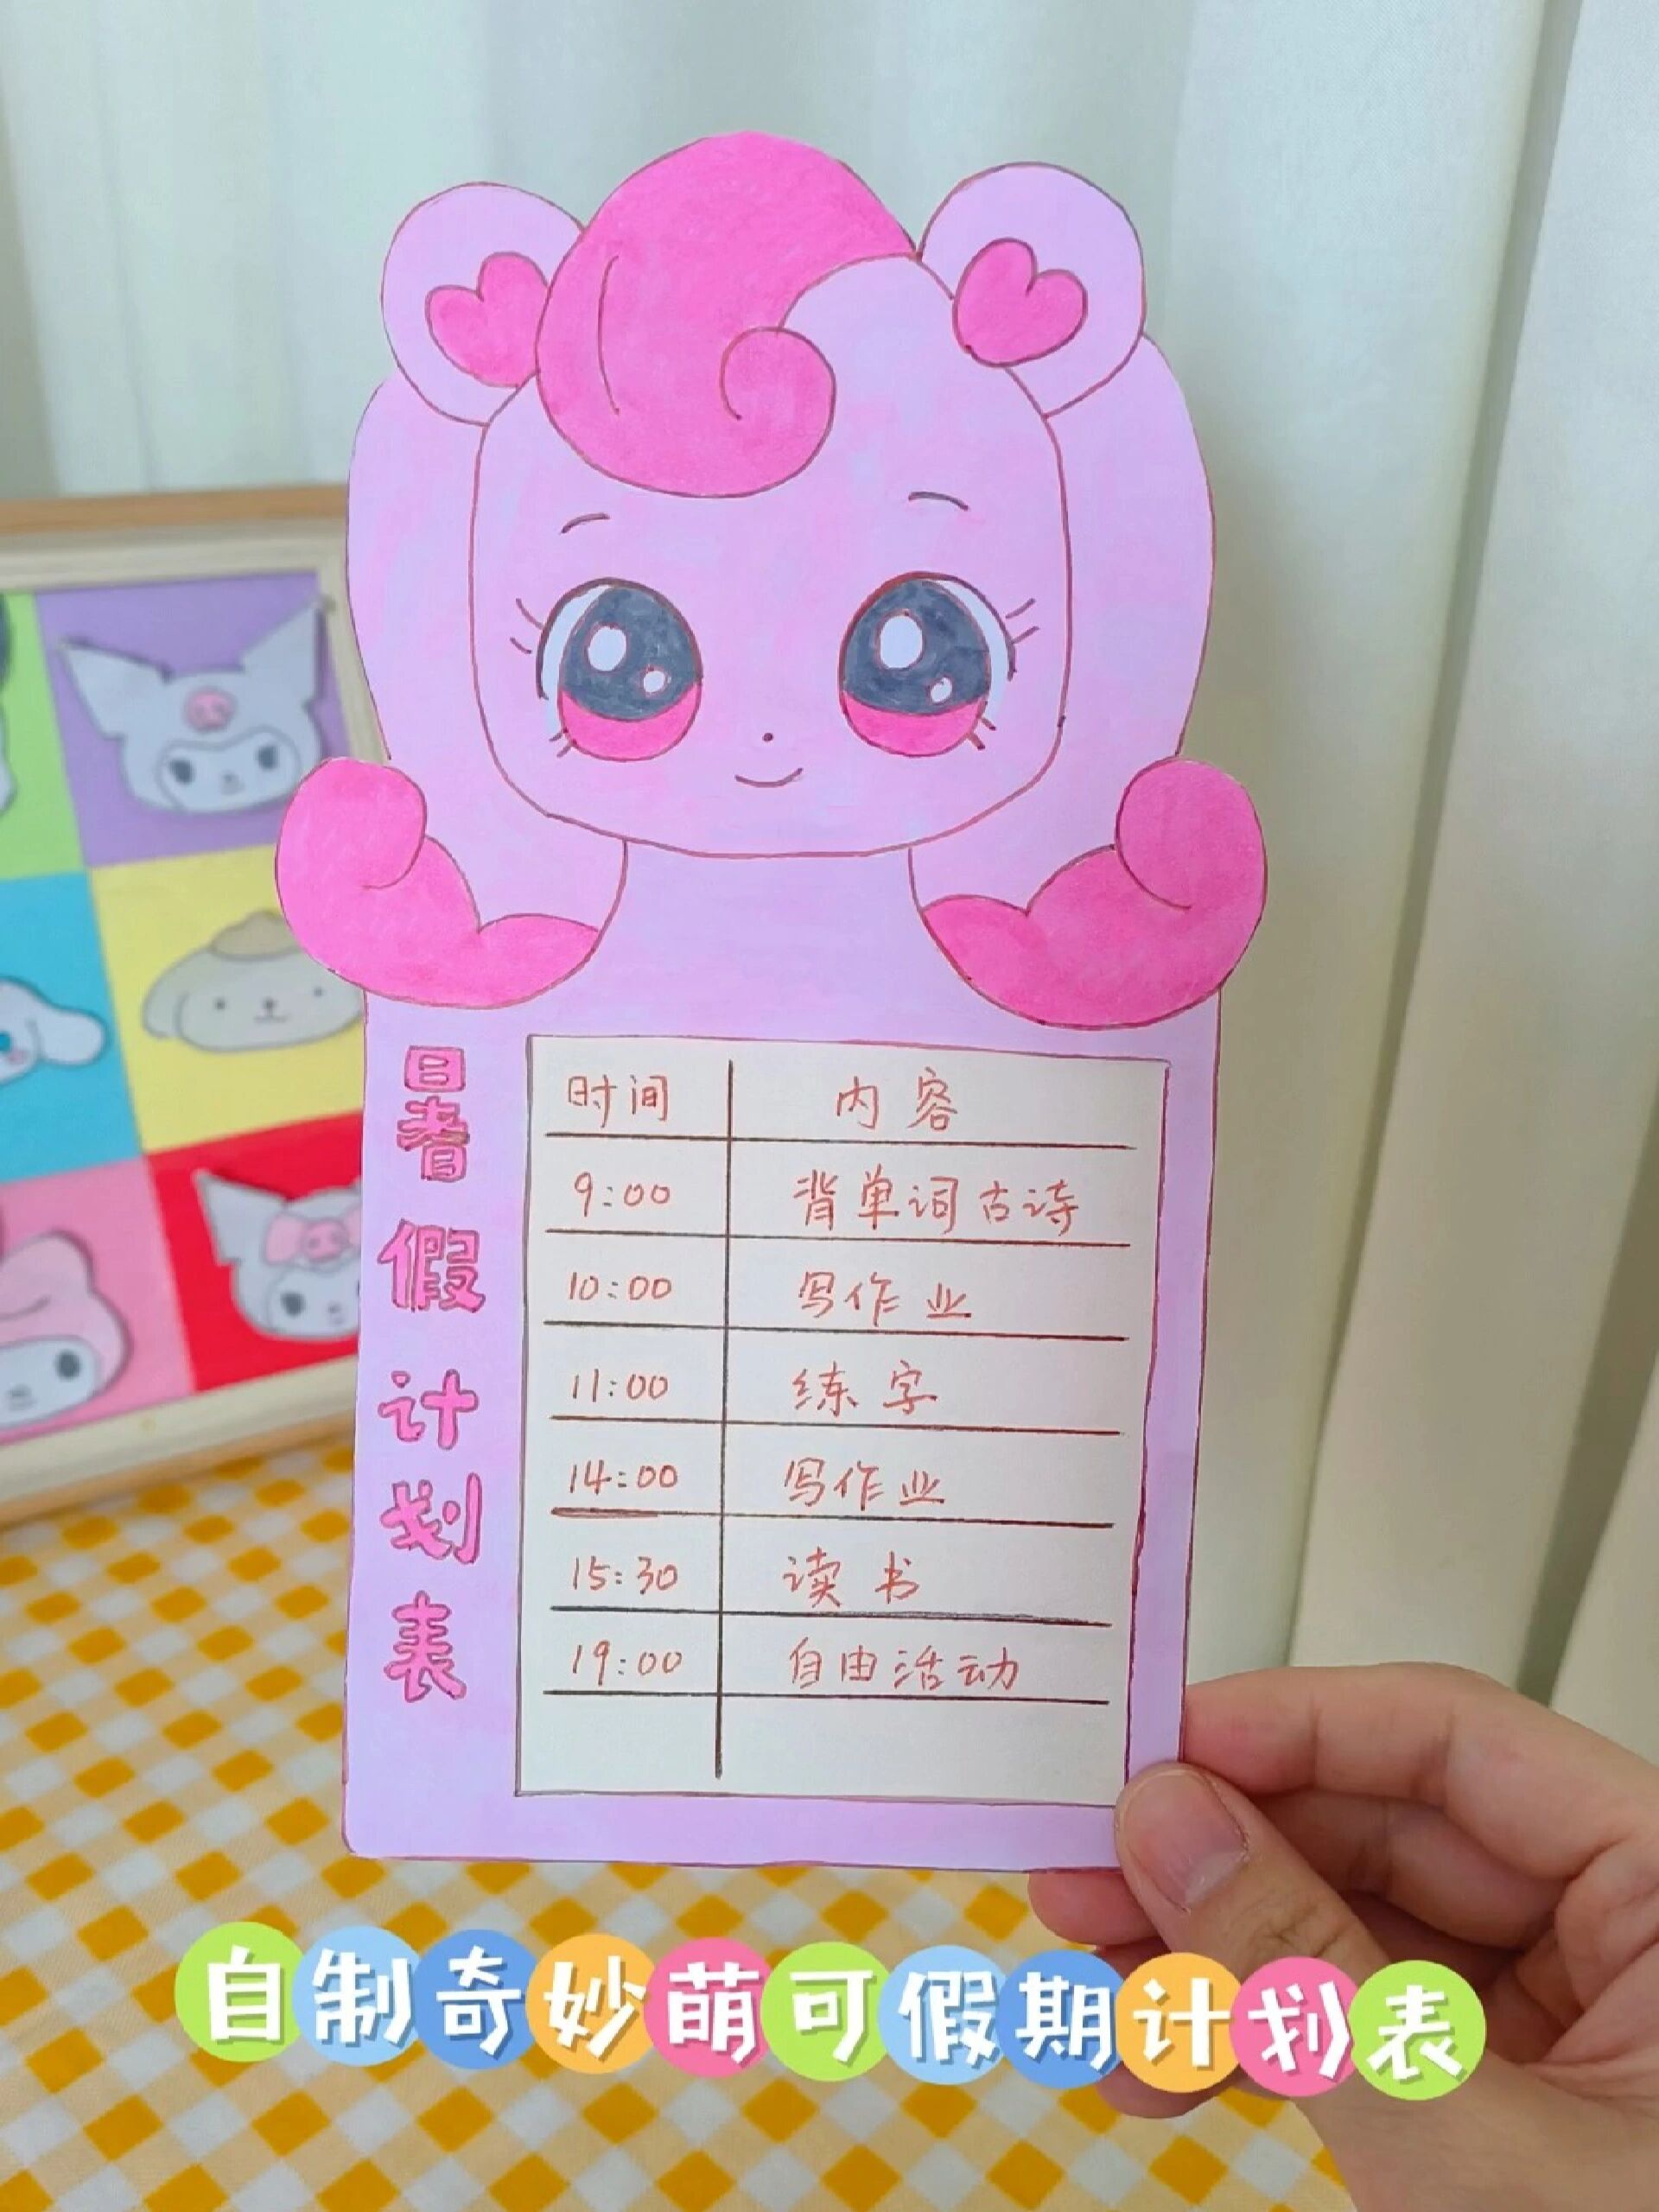 暑假计划表
时间 内容
9:00 背单词古诗
10:00 写作业
11:00 练字
14:00 写作业
15:30 读书
19:00 自由活动
自制奇妙萌可假期计划表